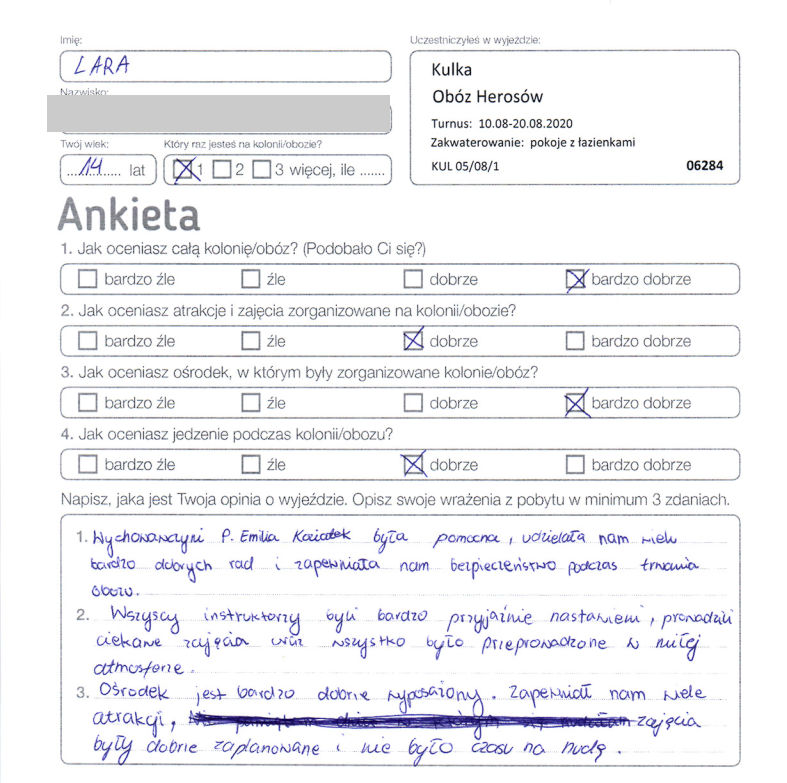 Imię:
LARA
Nazwisko:
Twój wiek:
Który raz jesteś na kolonii/obozie?
...14..... lat
1 2 3 więcej, ile .......
Uczestniczyłeś w wyjeździe:
Kulka
Obóz Herosów
Turnus: 10.08-20.08.2020
Zakwaterowanie: pokoje z łazienkami
KUL 05/08/1 06284
Ankieta
1. Jak oceniasz całą kolonię/obóz? (Podobało Ci się?)
bardzo źle źle dobrze bardzo dobrze
2. Jak oceniasz atrakcje i zajęcia zorganizowane na kolonii/obozie?
bardzo źle źle dobrze bardzo dobrze
3. Jak oceniasz ośrodek, w którym były zorganizowane kolonie/obóz?
bardzo źle źle dobrze bardzo dobrze
4. Jak oceniasz jedzenie podczas kolonii/obozu?
bardzo źle źle dobrze bardzo dobrze
Napisz, jaka jest Twoja opinia o wyjeździe. Opisz swoje wrażenia z pobytu w minimum 3 zdaniach.
1. Wychowawczyni P. Emilia była pomocna, udzielała nam wielu
bardzo dobrych rad i zapewniała nam bezpieczeństwo podczas trwania
obozu.
2. Wszyscy instruktorzy byli bardzo przyjaźnie nastawieni, prowadzili
ciekawe zajęcia oraz wszystko było przeprowadzone w miłej
atmosferze.
3. Ośrodek jest bardzo dobrze wyposażony. Zapewniał nam wiele
atrakcji, zajęcia
były dobrze zaplanowane i nie było czasu na nudę.